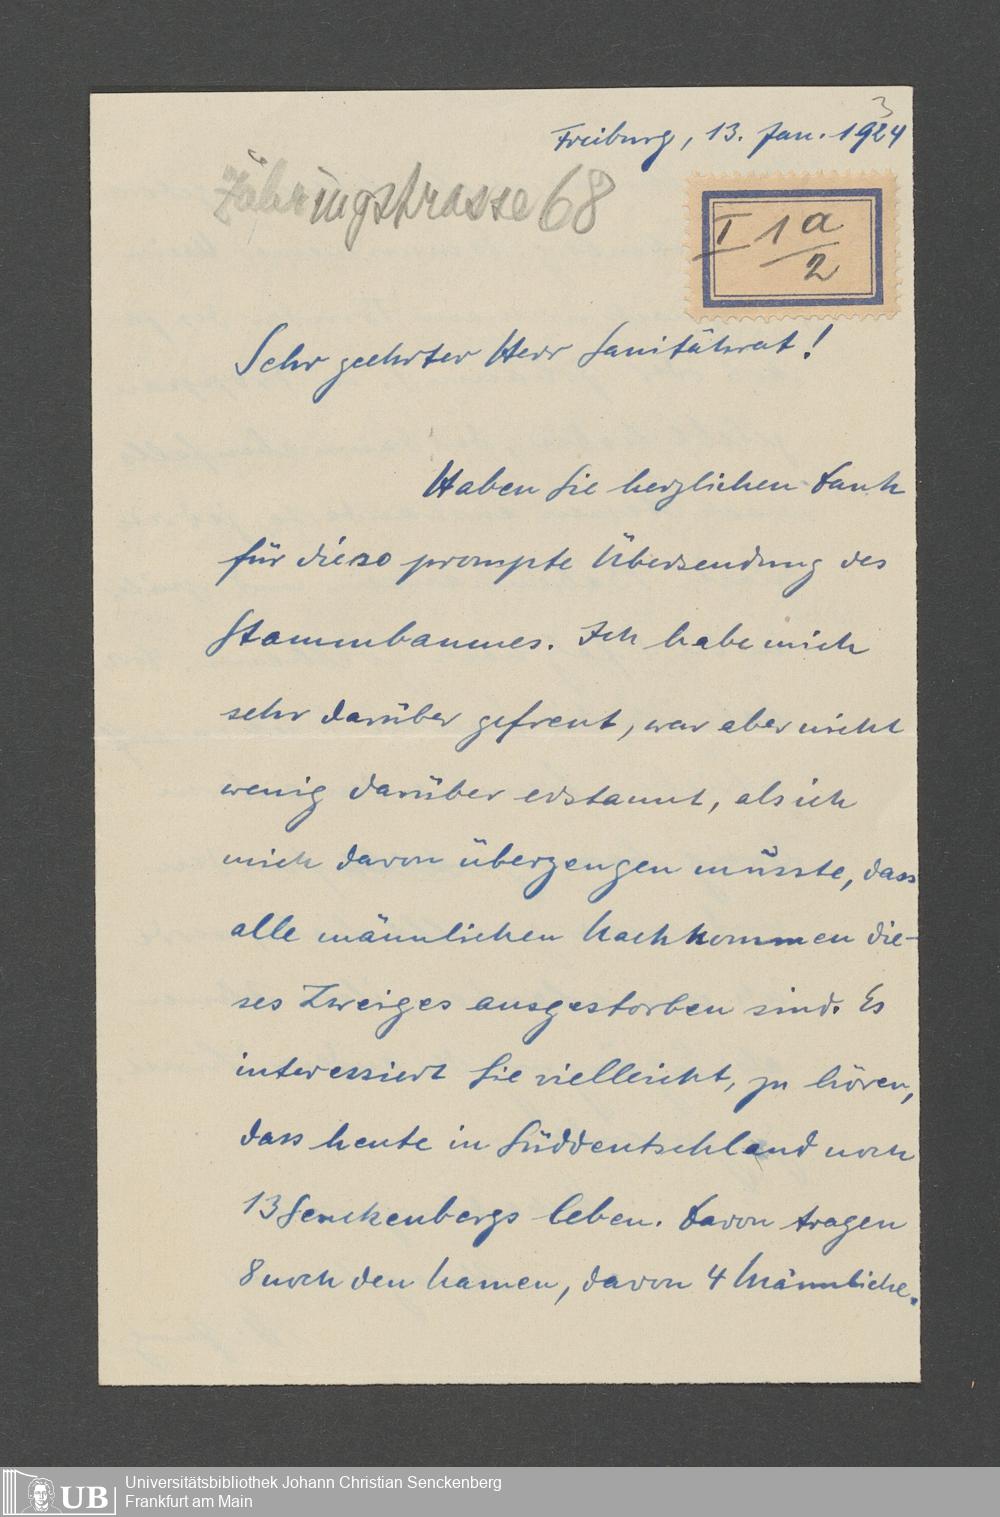 3
Freiburg, 13. Jan. 1924
Zähringstrasse 68
I 1 a/2
Sehr geehrter Herr Sanitätsrat!
Haben Sie herzlichen Dank
für diese prompte Übersendung des
Stammbaumes. Ich habe mich
sehr darüber gefreut, war aber nicht
wenig darüber erstaunt, als ich
mich davon überzeugen müsste, dass
alle männlichen Nachkommen die-
ses Zweiges ausgestorben sind. Es
interessiert Sie vielleicht, zu hören,
dass heute in Süddeutschland noch
13 Senckenbergs leben. Davon tragen
8 noch den Namen, davon 4 Männliche.
UB
Universitätsbibliothek Johann Christian Senckenberg
Frankfurt am Main